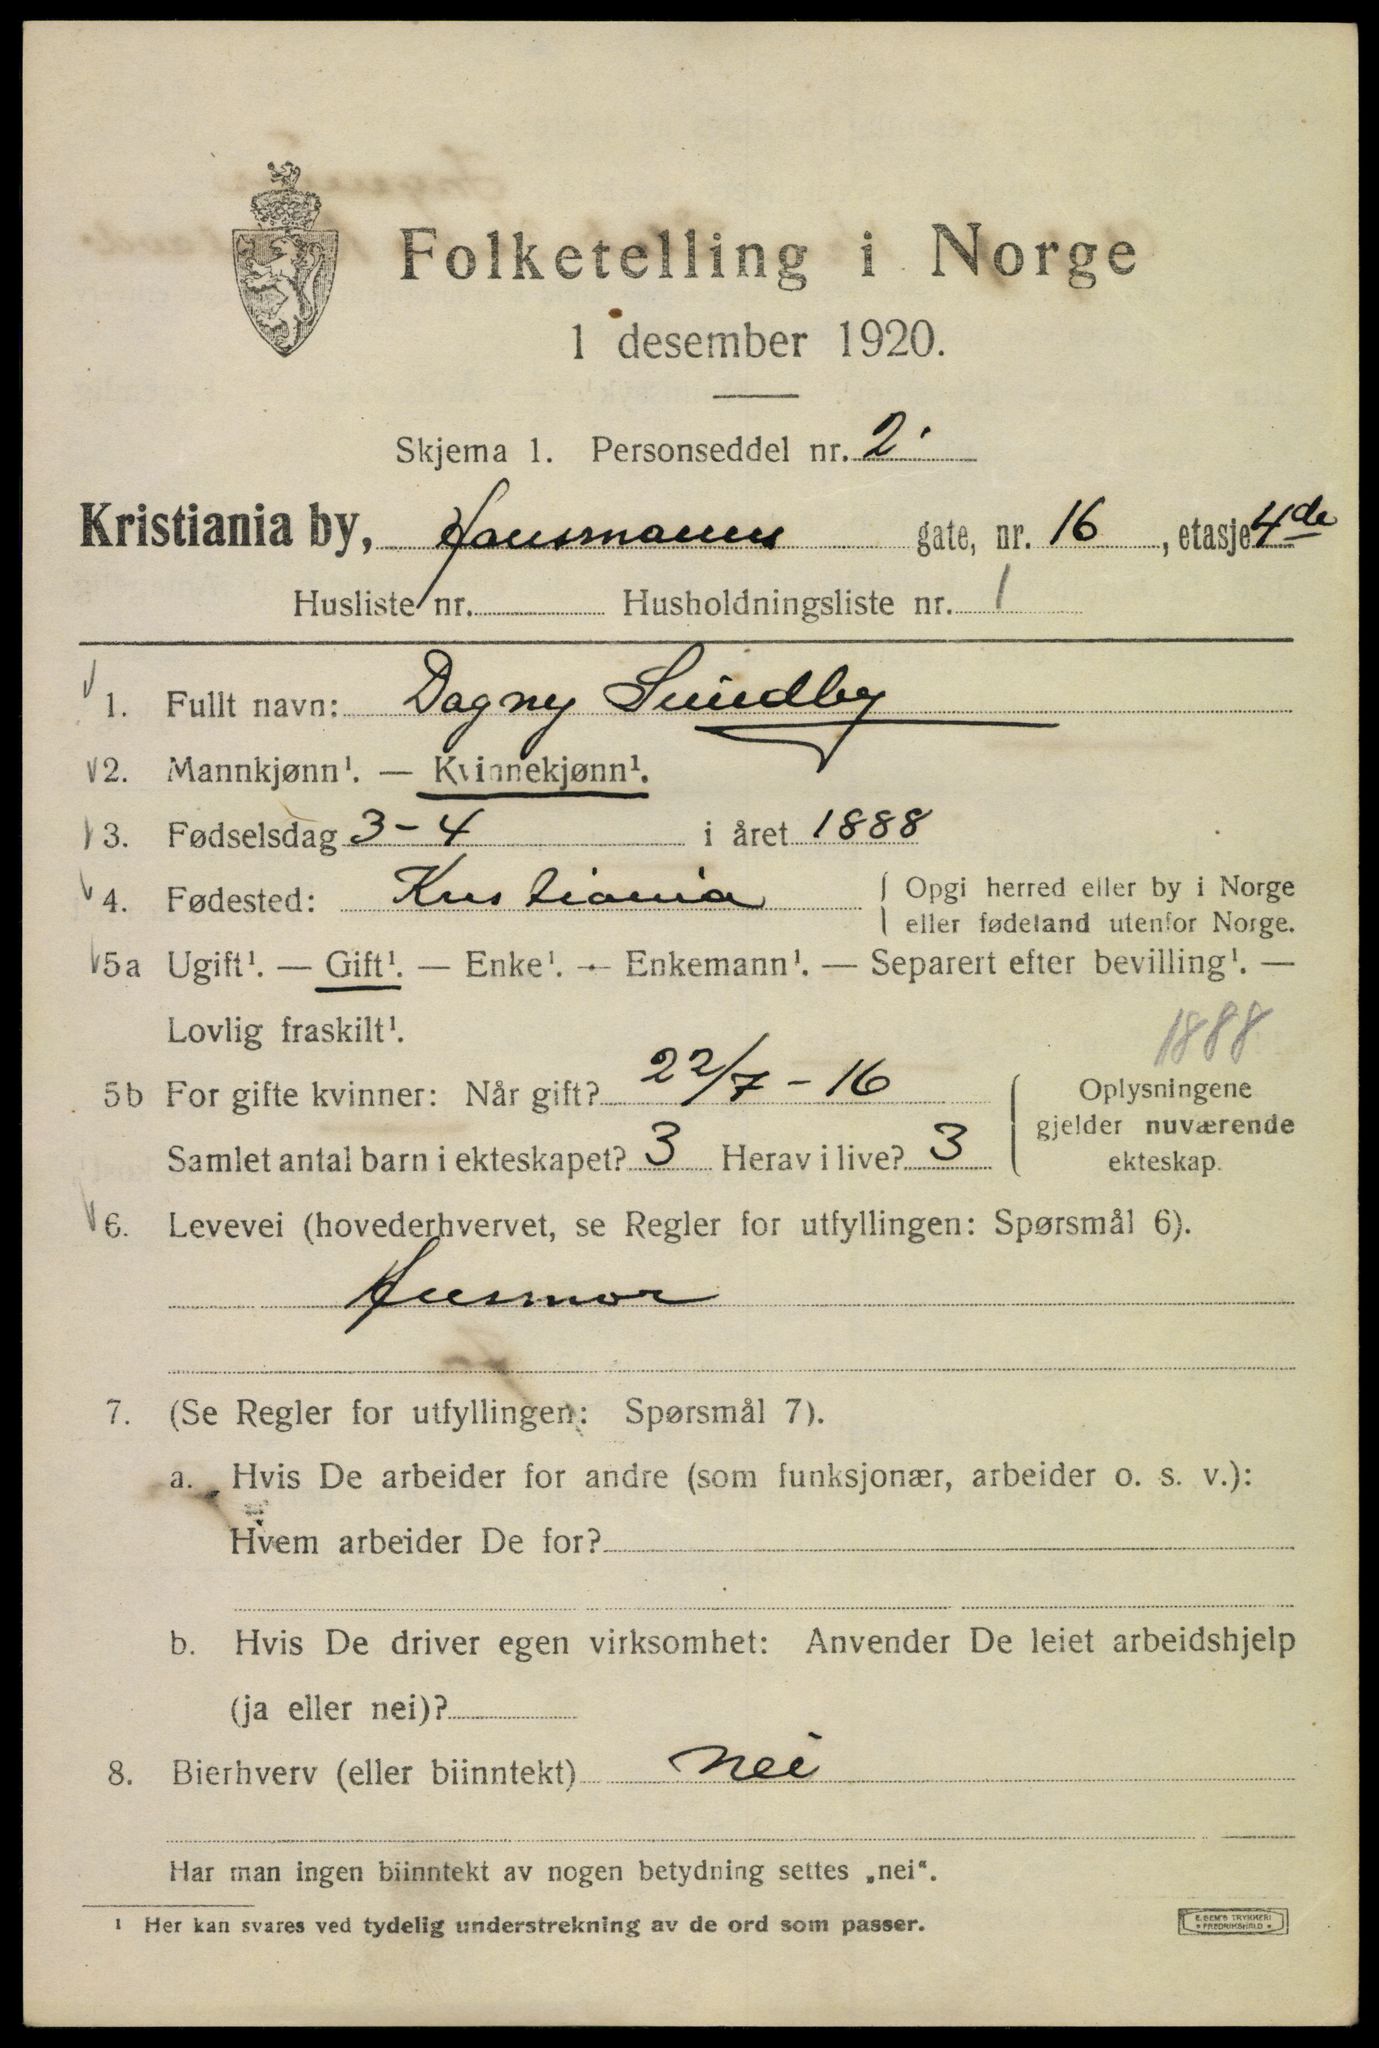 Folketelling i Norge
1 desember 1920.
Skjema 1. Personseddel nr. 2.
Kristiania by, Hausmanns gate, nr. 16, etasje 4de
Husliste nr. Husholdningsliste nr. 1
1. Fullt navn: Dagny Sundby
2. Mannkjønn¹. — Kvinnekjønn¹.
3. Fødselsdag 3-4 i året 1888
4. Fødested: Kristiania { Opgi herred eller by i Norge
eller fødeland utenfor Norge.
5a Ugift¹. — Gift¹. — Enke¹. — Enkemann¹. — Separert efter bevilling¹. —
Lovlig fraskilt¹.
1888
5b For gifte kvinner: Når gift? 22/7 - 16
Samlet antal barn i ekteskapet? 3 Herav i live? 3
{ Oplysningene
gjelder nuværende
ekteskap.
6. Levevei (hovederhvervet, se Regler for utfyllingen: Spørsmål 6).
Husmor
7. (Se Regler for utfyllingen: Spørsmål 7).
a. Hvis De arbeider for andre (som funksjonær, arbeider o. s. v.):
Hvem arbeider De for?
b. Hvis De driver egen virksomhet: Anvender De leiet arbeidshjelp
(ja eller nei)?
8. Bierhverv (eller biinntekt) nei
Har man ingen biinntekt av nogen betydning settes „nei“.
¹ Her kan svares ved tydelig understrekning av de ord som passer.
E. SEM'S TRYKKERI
* FREDRIKSHALD *